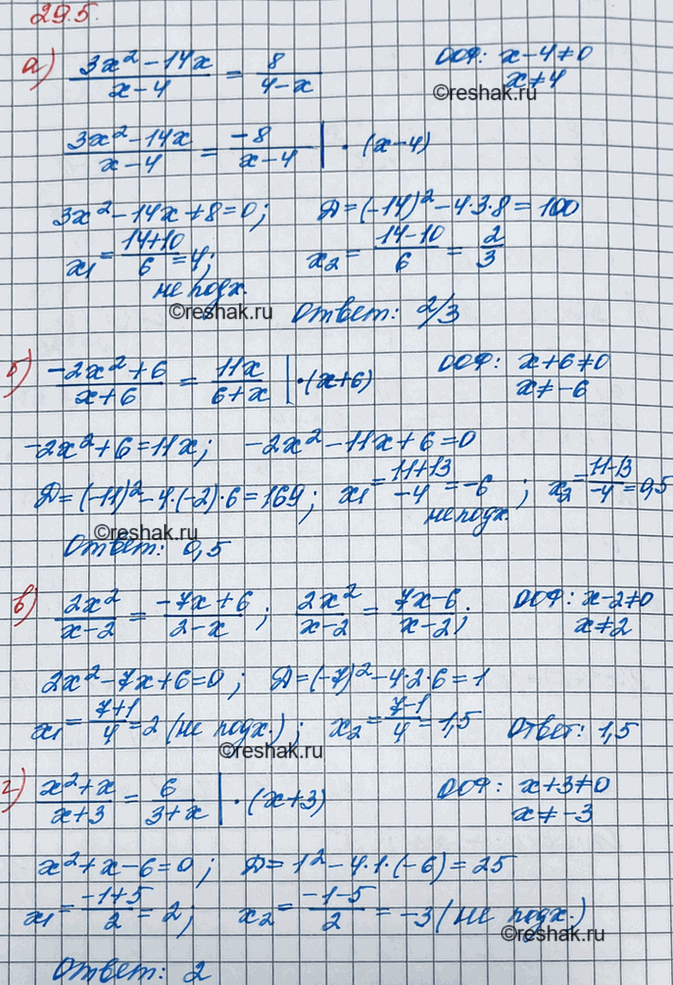 29.5.
а) (3x² − 14x)/(x − 4) = 8/(4 − x)    ООФ: x − 4 ≠ 0
x ≠ 4
©reshak.ru
(3x² − 14x)/(x − 4) = −8/(x − 4) | · (x − 4)
3x² − 14x + 8 = 0;    Д = (−14)² − 4·3·8 = 100
x₁ = (14+10)/6 = 4;    x₂ = (14−10)/6 = 2/3
не подх.
©reshak.ru
Ответ: 2/3
б) (−2x² + 6)/(x + 6) = 11x/(6 + x) | · (x + 6)    ООФ: x + 6 ≠ 0
x ≠ −6
−2x² + 6 = 11x;    −2x² − 11x + 6 = 0
Д = (−11)² − 4·(−2)·6 = 169;    x₁ = (11+13)/−4 = −6;    x₂ = (11−13)/−4 = 0,5
не подх.
©reshak.ru
Ответ: 0,5
в) 2x²/(x − 2) = (−7x + 6)/(2 − x);    2x²/(x − 2) = (7x − 6)/(x − 2);    ООФ: x − 2 ≠ 0
x ≠ 2
2x² − 7x + 6 = 0;    Д = (−7)² − 4·2·6 = 1
x₁ = (7+1)/4 = 2 (не подх.);    x₂ = (7−1)/4 = 1,5    Ответ: 1,5
©reshak.ru
г) (x² + x)/(x + 3) = 6/(3 + x) | · (x + 3)    ООФ: x + 3 ≠ 0
x ≠ −3
x² + x − 6 = 0;    Д = 1² − 4·1·(−6) = 25
x₁ = (−1+5)/2 = 2;    x₂ = (−1−5)/2 = −3 (не подх.)
©reshak.ru
Ответ: 2